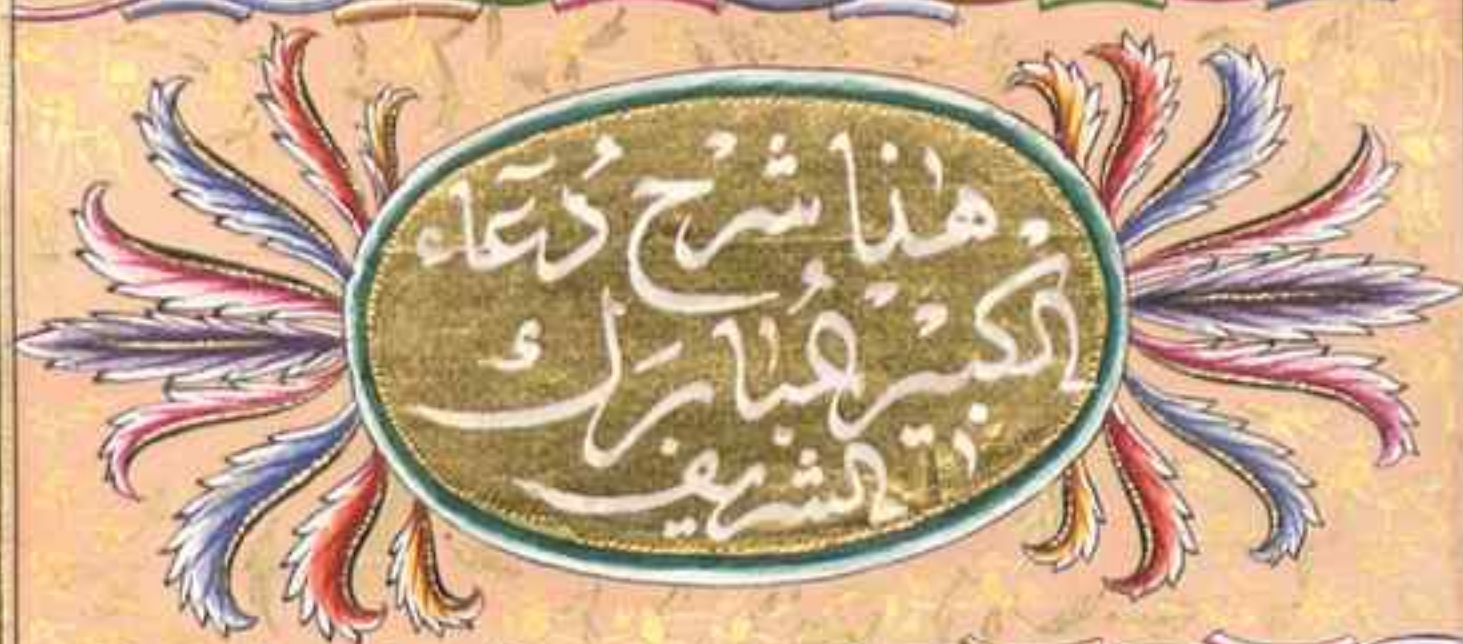 هٰذا شَرْح دُعَآء
الكَبِير مُبارَك
الشريف